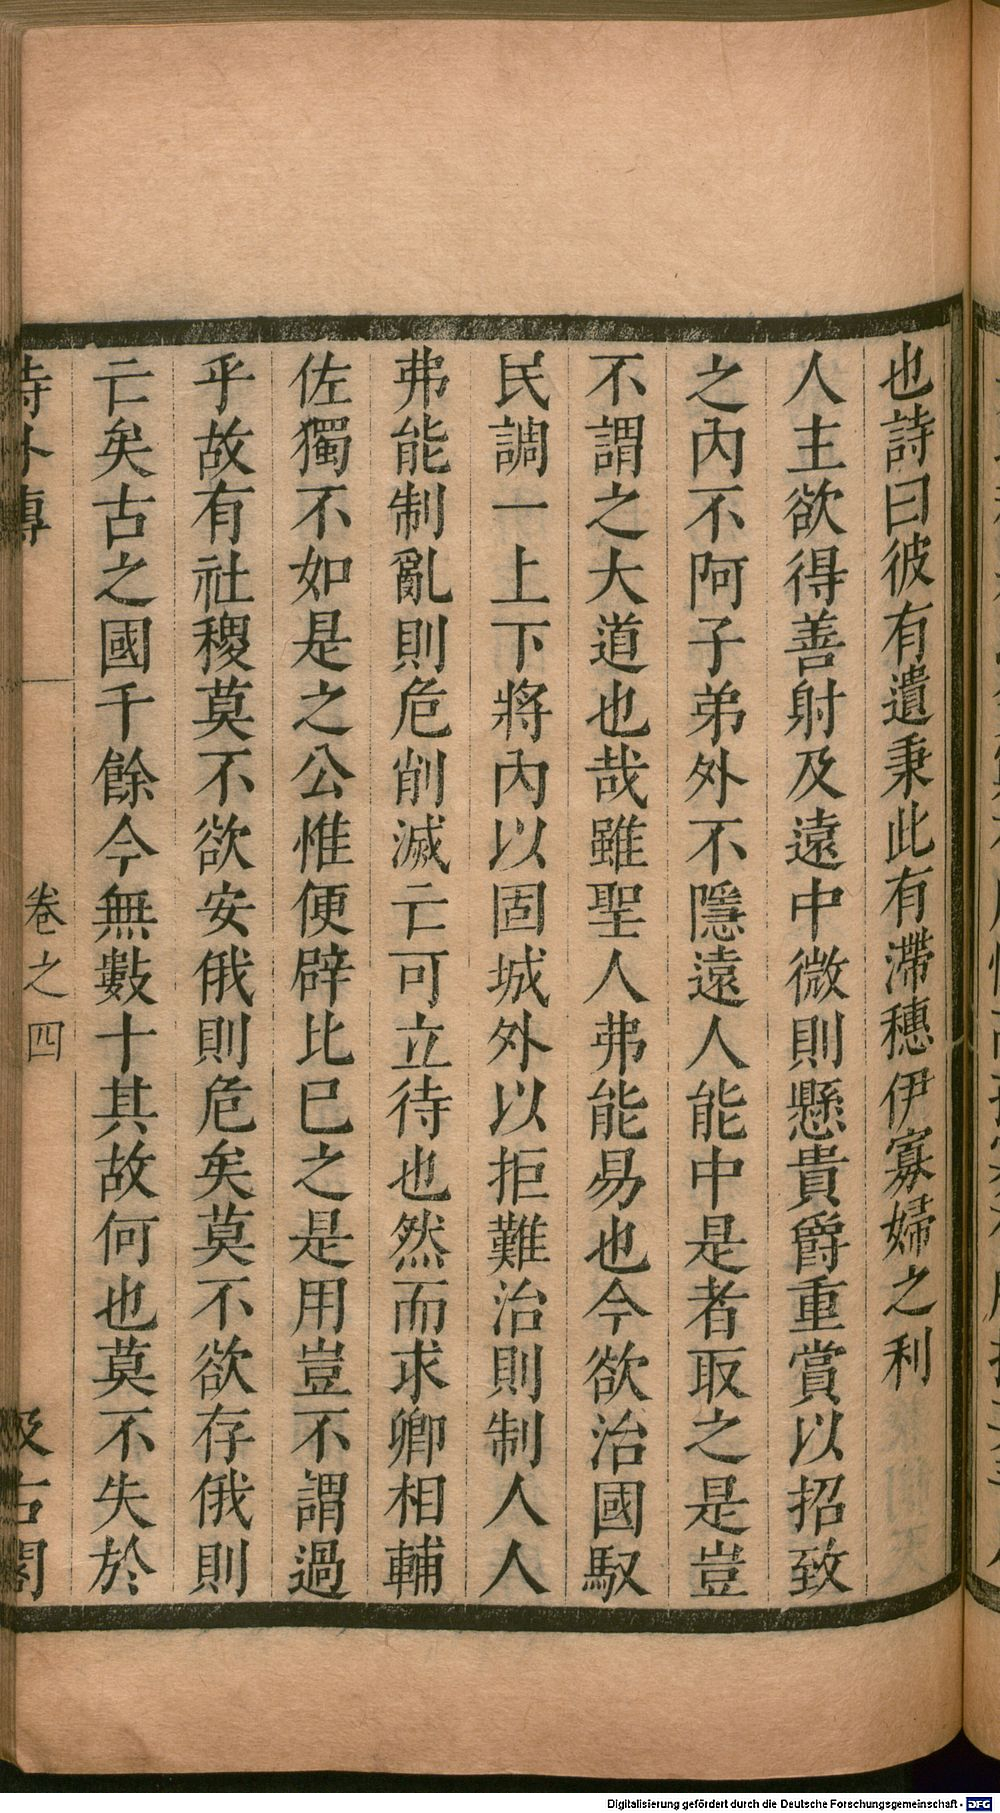 也詩曰彼有遺秉此有滯穗伊寡婦之利
人主欲得善射及遠中微則懸貴爵重賞以招致
之內不阿子弟外不隱遠人能中是者取之是豈
不謂之大道也哉雖聖人弗能易也今欲治國馭
民調一上下將內以固城外以拒難治則制人人
弗能制亂則危削滅亡可立待也然而求卿相輔
佐獨不如是之公惟便辟比巳之是用豈不謂過
乎故有社稷莫不欲安俄則危矣莫不欲存俄則
亡矣古之國千餘今無數十其故何也莫不失於
詩外傳
卷之四
汲古閣
Digitalisierung gefördert durch die Deutsche Forschungsgemeinschaft - DFG